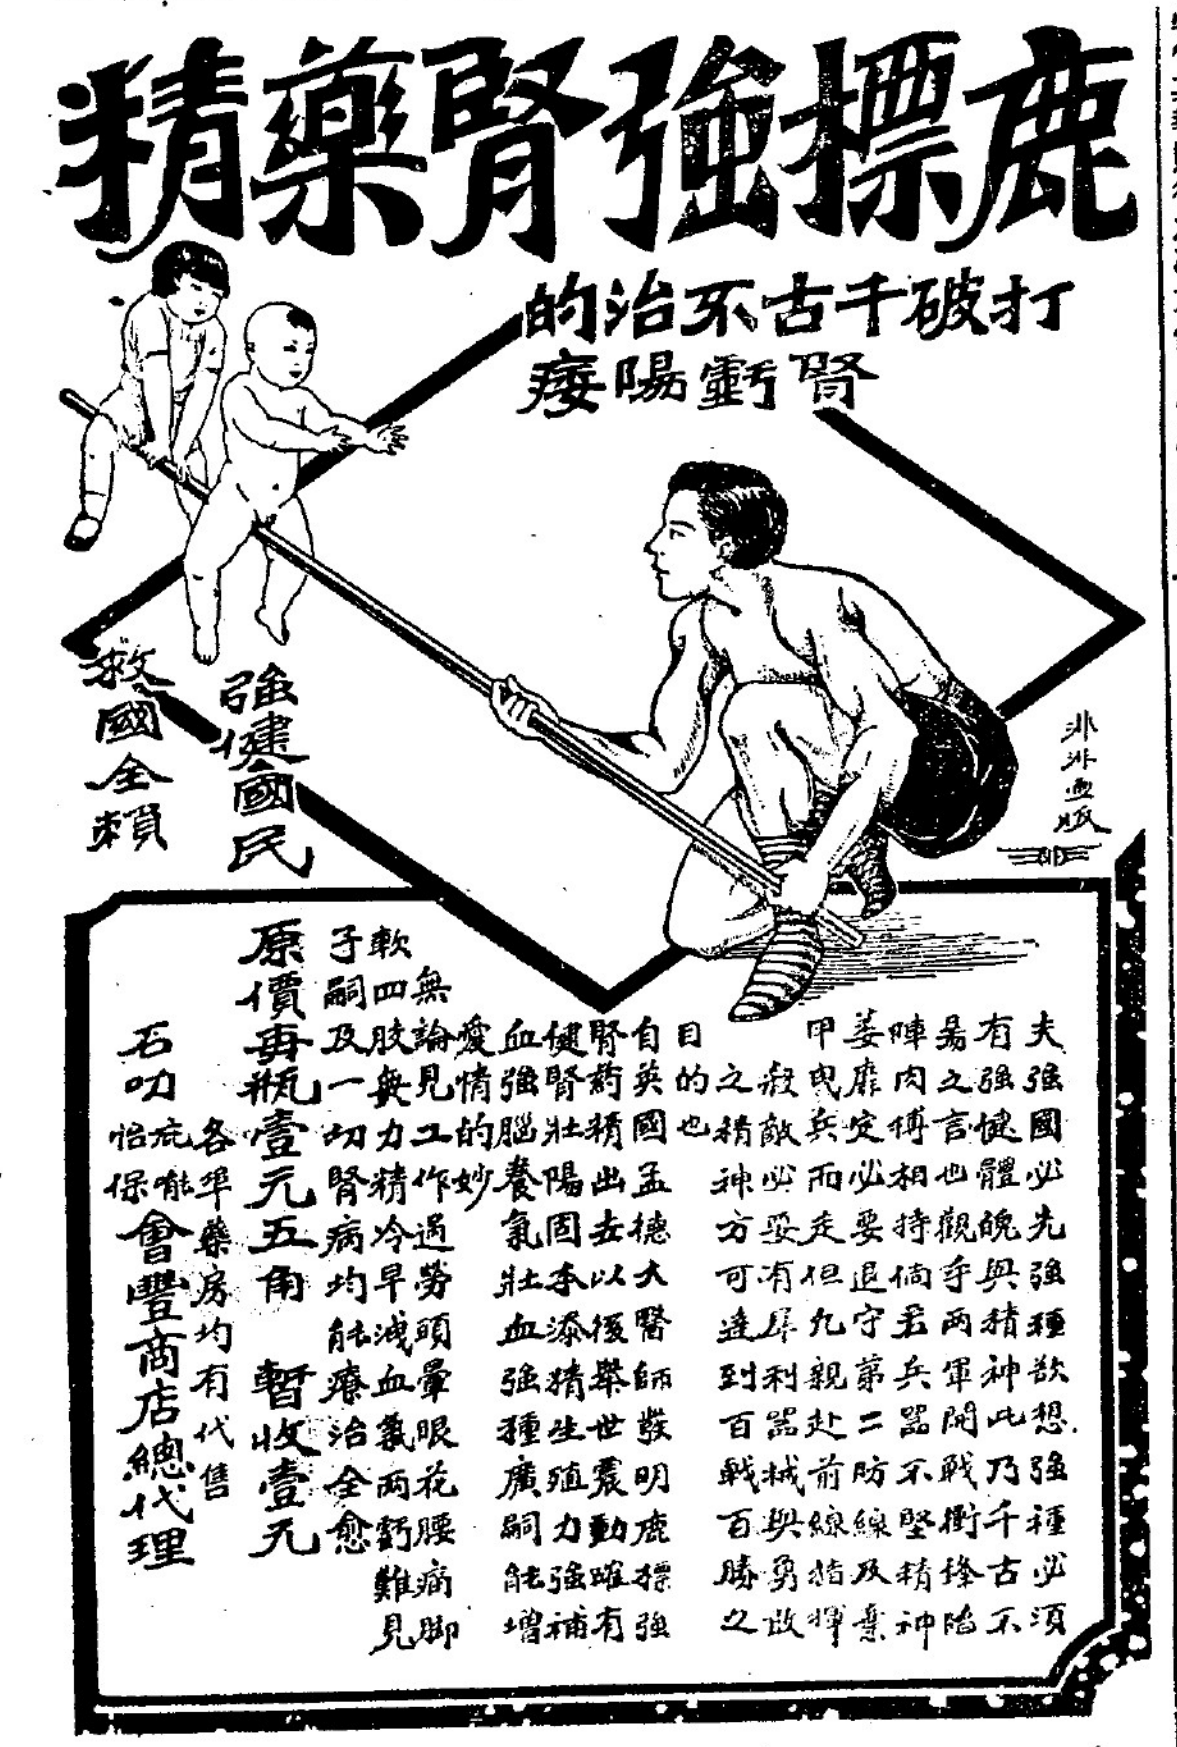 鹿標強腎藥精
打破千古不治的
腎虧陽痿
強健國民
救國全賴
非非画版
夫強國必先強種欲想強種必須
有強健體魄與精神此乃千古不
昜之言也觀乎兩軍開戰衝鋒陷
陣肉搏相持倘若兵器不堅精神
萎靡定必要退守第二防線及棄
甲曳兵而走但凡親赴前線指揮
殺敵必要有犀利器械與勇敢
之精神方可達到百戰百勝之
目的也
自英國孟德大醫師發明鹿標強
腎葯精出去以後舉世震動確有
健腎壯陽固本添精生殖力強補
血強腦養氣壯血強種廣嗣能增
愛情的妙
無論見工作過勞頭暈眼花腰痛脚
軟四肢無力精冷早洩血氣兩虧難見
子嗣及一切腎病均能療治全愈
原價每瓶壹元五角 暫收壹元
各埠藥房均有代售
石叻庇能怡保會豐商店總代理